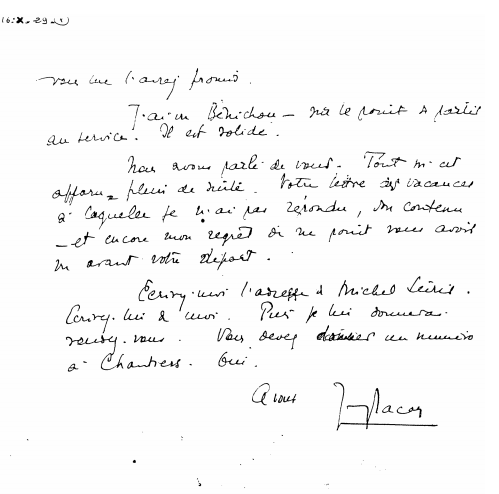 16.X.39 (1)
vous me l'avez promis.
J'ai vu Bénichou – sur le point de partir
au service. Il est solide.
Nous avons parlé de vous. Tout m'est
apparu plein de Votre lettre des vacances
à laquelle je n'ai pas répondu, son contenu
– et encore mon regret de ne point vous avoir
vu avant votre départ.
Ecrivez-moi l'adresse de Michel Leiris.
Ecrivez-lui à moi. Puis je lui donnerai
rendez-vous. Vous devez donner un numéro
à Chantiers. Oui.
A vous
JLacan